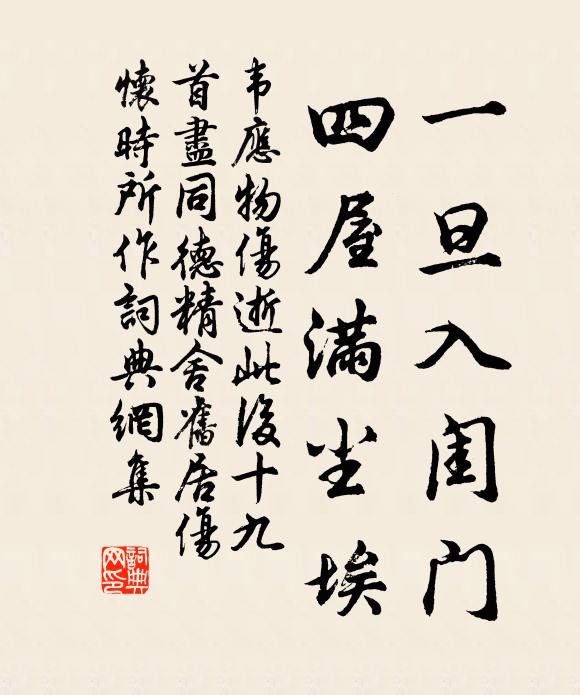 一旦入闺门
四屋满尘埃
韦應物傷逝此後十九
首盡同德精舍舊居傷
懷時所作詞典網集
詞典
网印